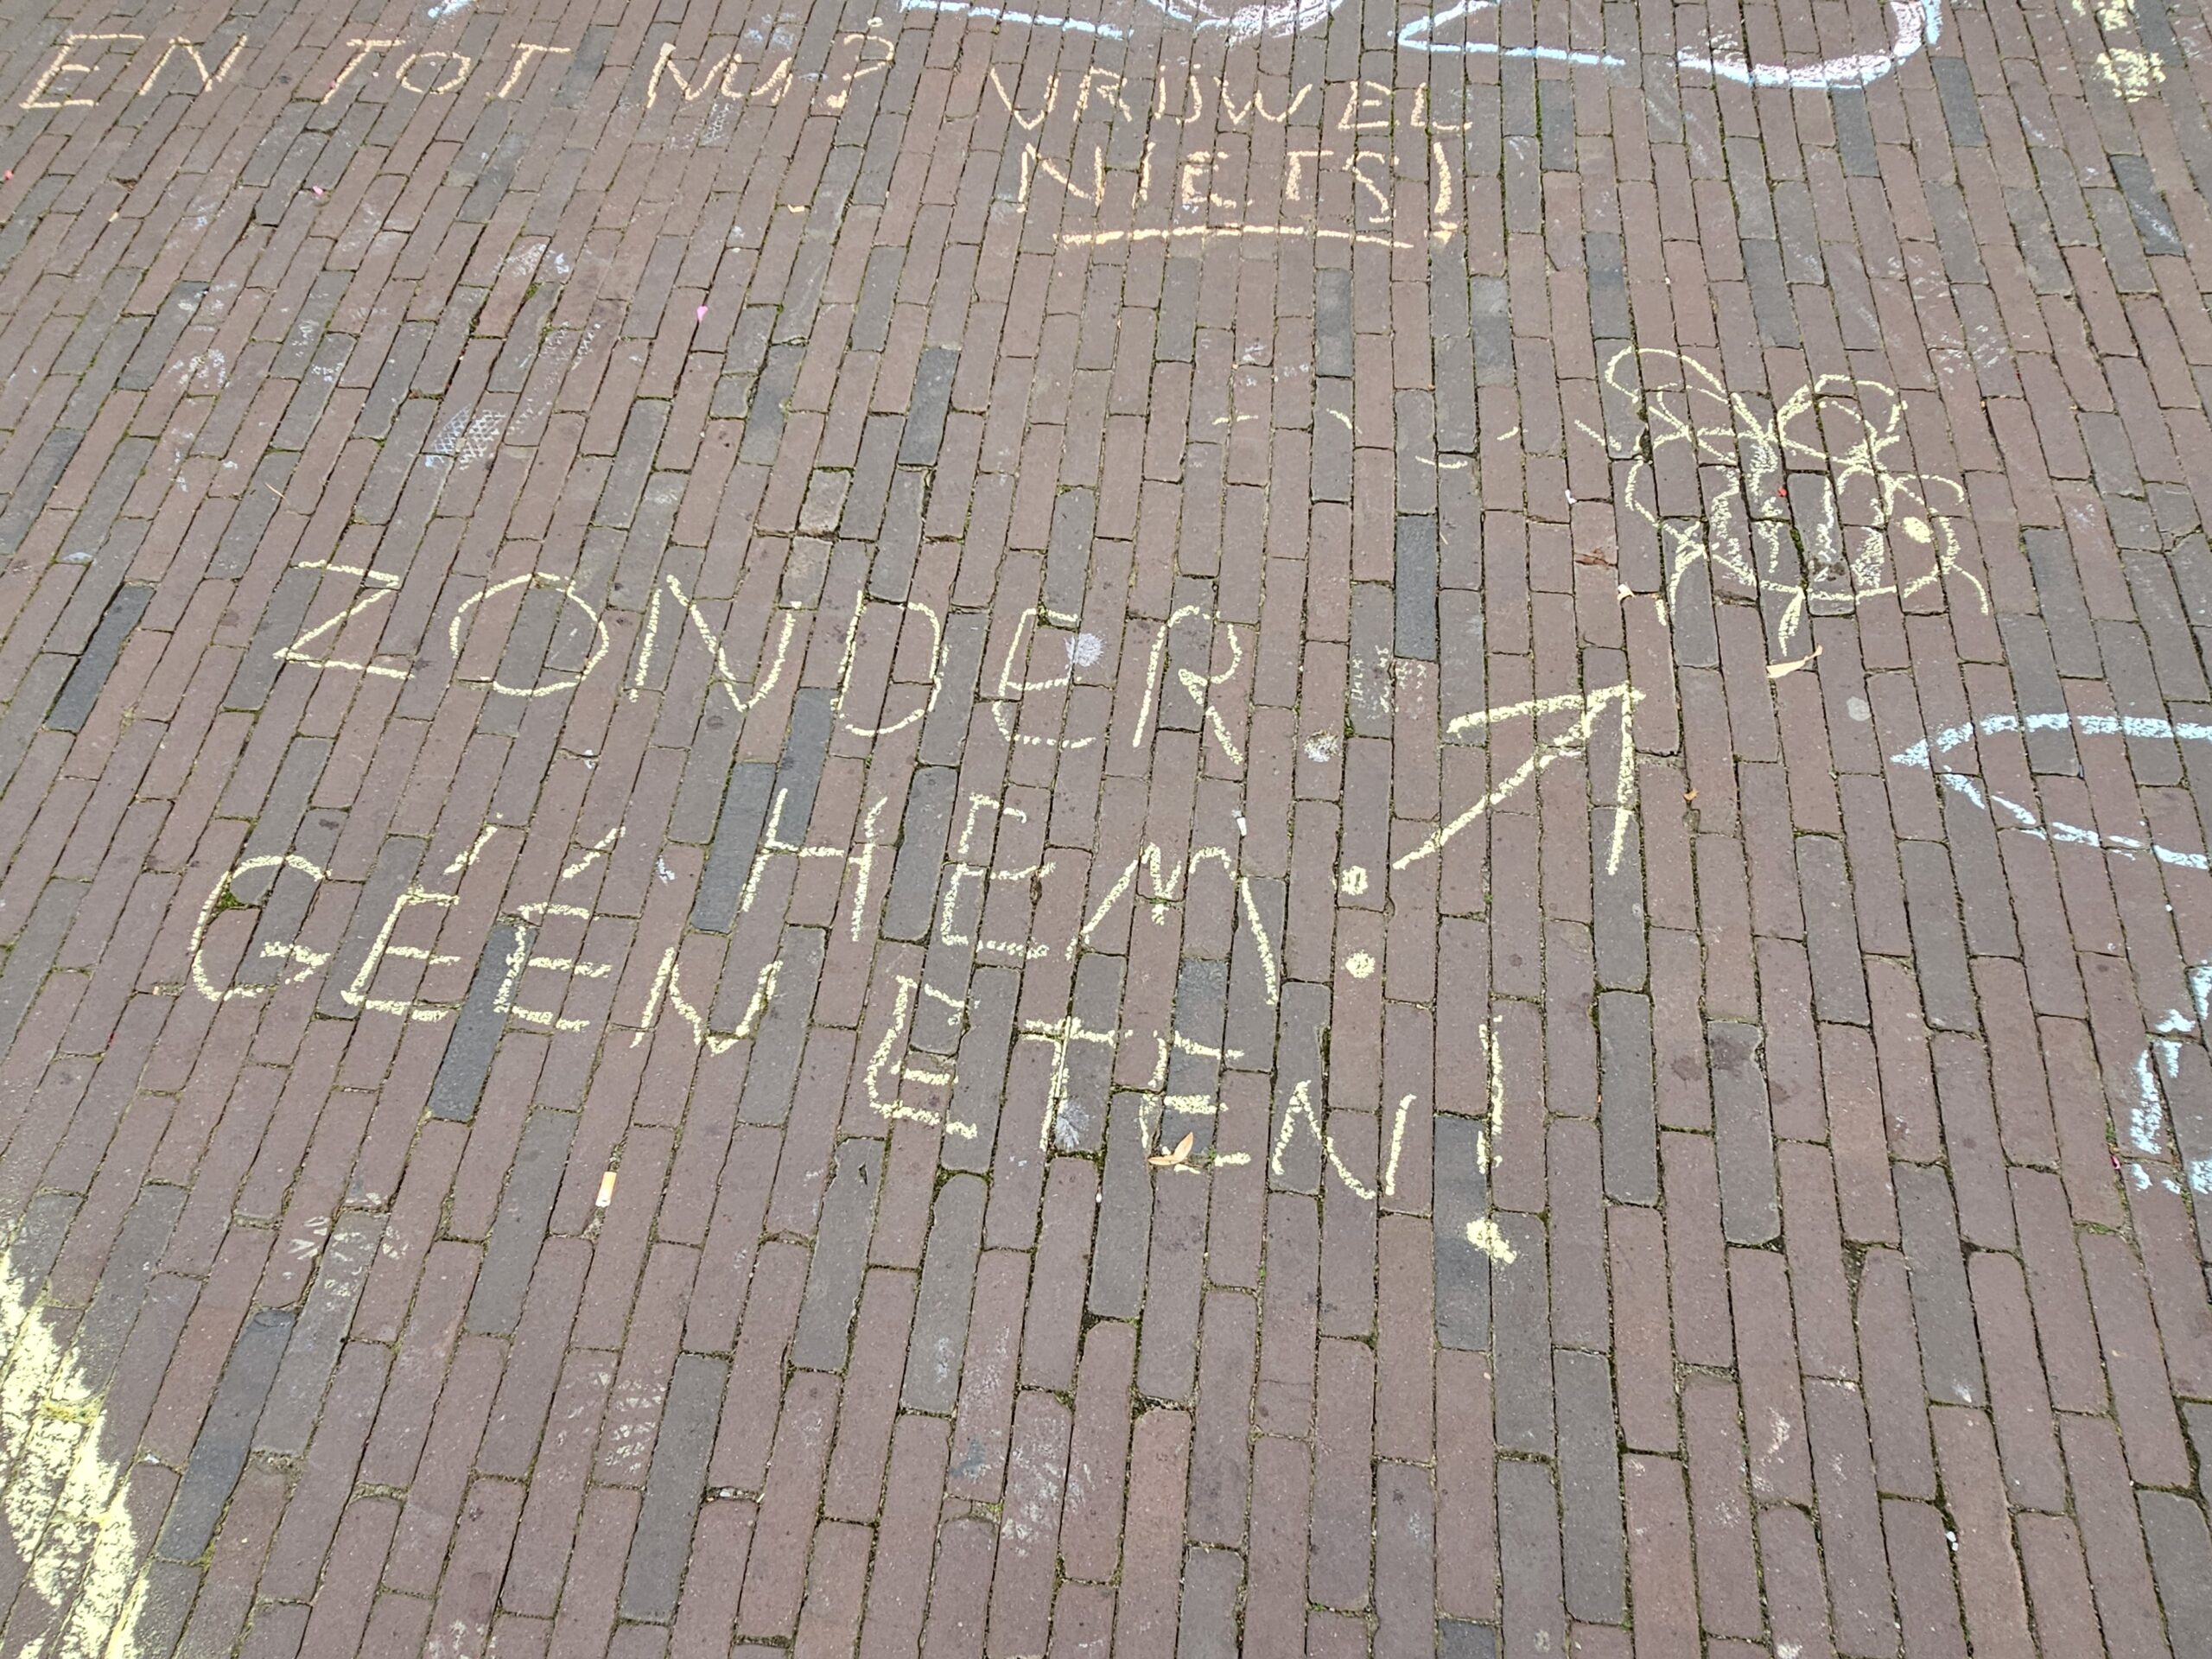 EN TOT NU? VRIJWEL
NIETS!
ZONDER
HEM:
GÉÉN ETEN!